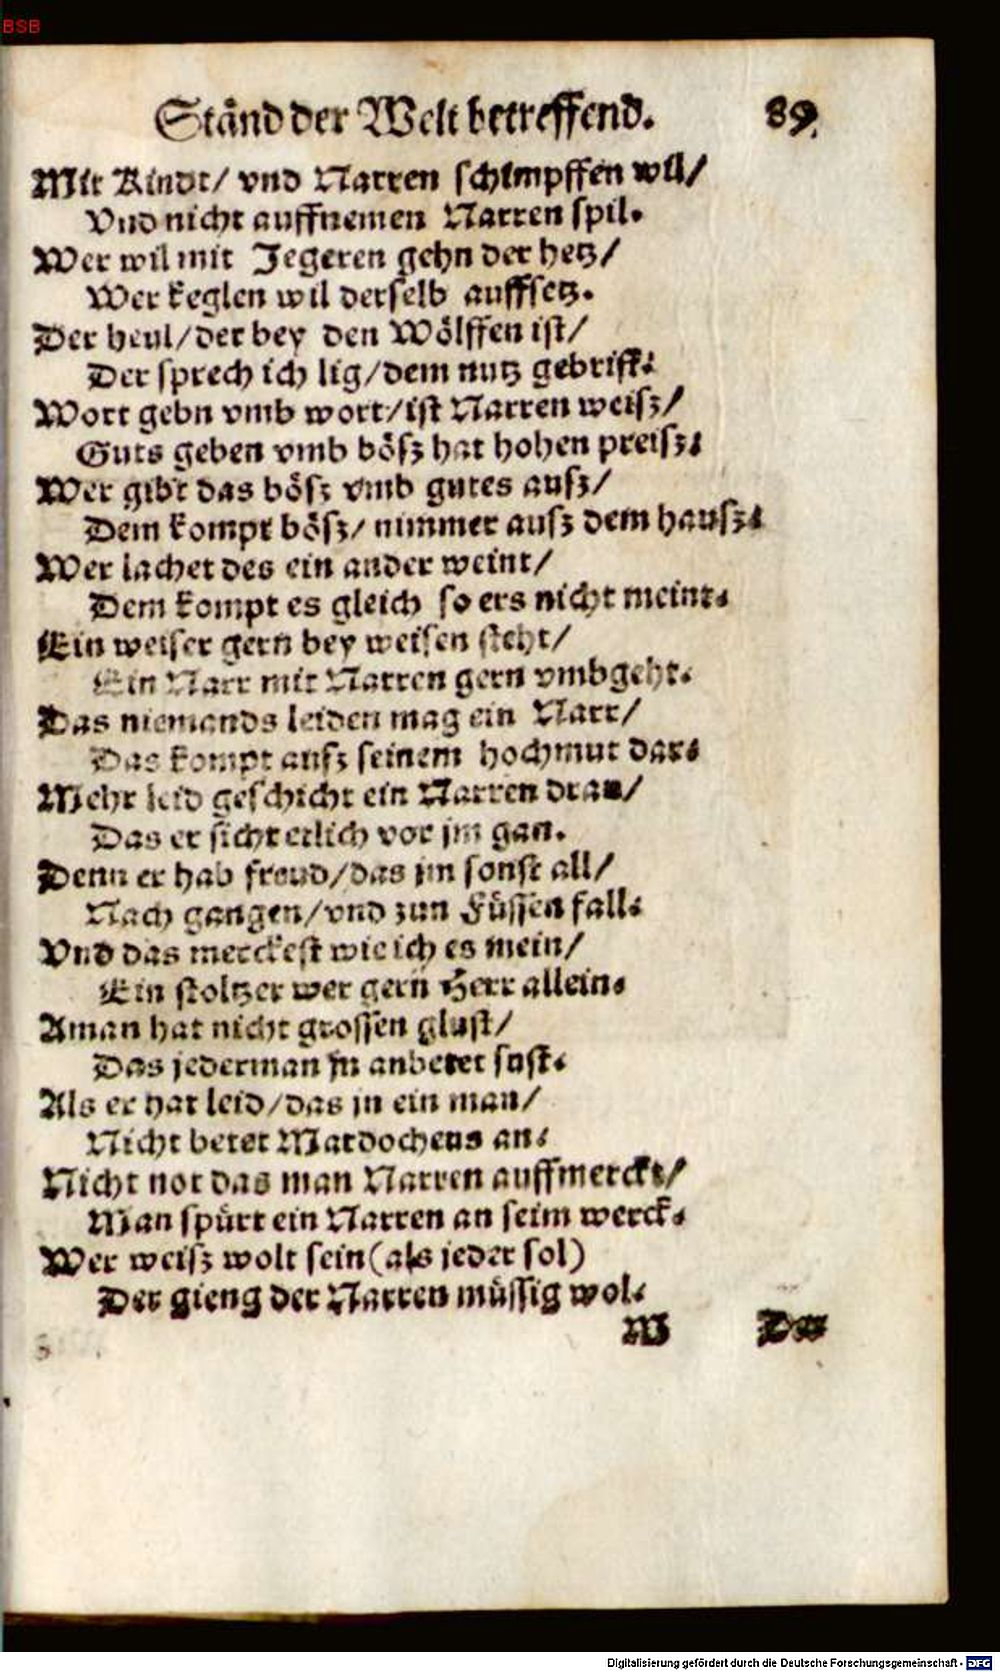 BSB
Ständ der Welt betreffend. 89.
Mit Kindt/ vnd Narren schimpffen wil/
Vnd nicht auffnemen Narren spil.
Wer wil mit Jegeren gehn der hetz/
Wer keglen wil derselb auffsetz.
Der heul/der bey den Wölffen ist/
Der sprech ich lig/dem nutz gebrist.
Wort gebn vmb wort/ist Narren weisz/
Guts geben vmb bösz hat hohen preisz.
Wer gibt das bösz vmb gutes ausz/
Dem kompt bösz/ nimmer ausz dem hausz.
Wer lachet des ein ander weint/
Dem kompt es gleich so ers nicht meint.
Ein weiser gern bey weisen steht/
Ein Narr mit Narren gern vmbgeht.
Das niemands leiden mag ein Narr/
Das kompt ausz seinem hochmut dar.
Mehr leid geschicht ein Narren dran/
Das er sicht etlich vor jm gan.
Denn er hab freud/das jm sonst all/
Nach gangen/vnd zun Füssen fall.
Vnd das merckest wie ich es mein/
Ein stoltzer wer gern Herr allein.
Aman hat nicht grossen glust/
Das jederman jn anbetet sust.
Als er hat leid/das jn ein man/
Nicht betet Mardocheus an.
Nicht not das man Narren auffmerckt/
Man spürt ein Narren an seim werck.
Wer weisz wolt sein (als jeder sol)
Der gieng der Narren müssig wol.
M Der
Digitalisierung gefördert durch die Deutsche Forschungsgemeinschaft - DFG